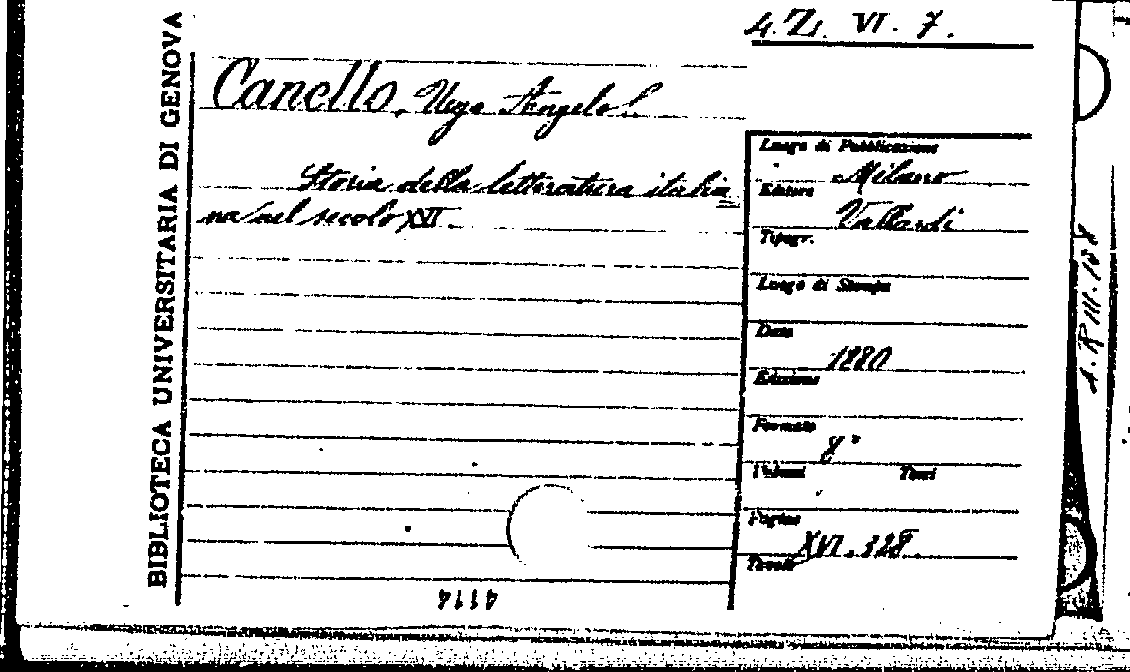 4. Z. VI. 7.
BIBLIOTECA UNIVERSITARIA DI GENOVA
Canello, Ugo Angelo
Storia della letteratura italia
na nel secolo XVI.
Luogo di Pubblicazione
Milano
Editore
Vallardi
Tipogr.
Luogo di Stampa
Data
1880
Edizione
Formato
8°
Volumi Tomi
Pagine
XVI. 328.
Tavole
4114
A. R III. 188